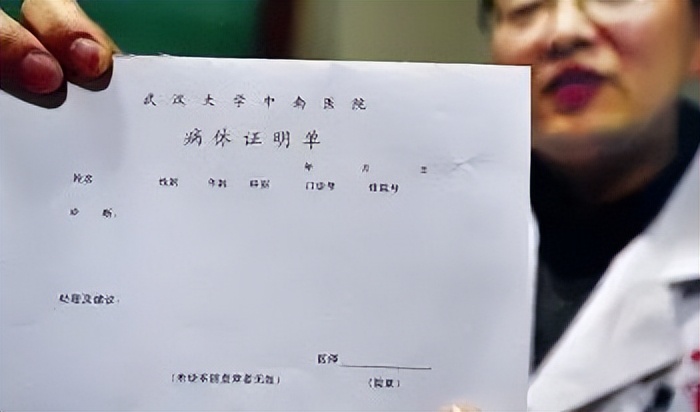 武汉大学中南医院
病休证明单
年 月 日
姓名 性别 年龄 科别 门诊号 住院号
诊 断:
处理及建议:
医师
(院章)